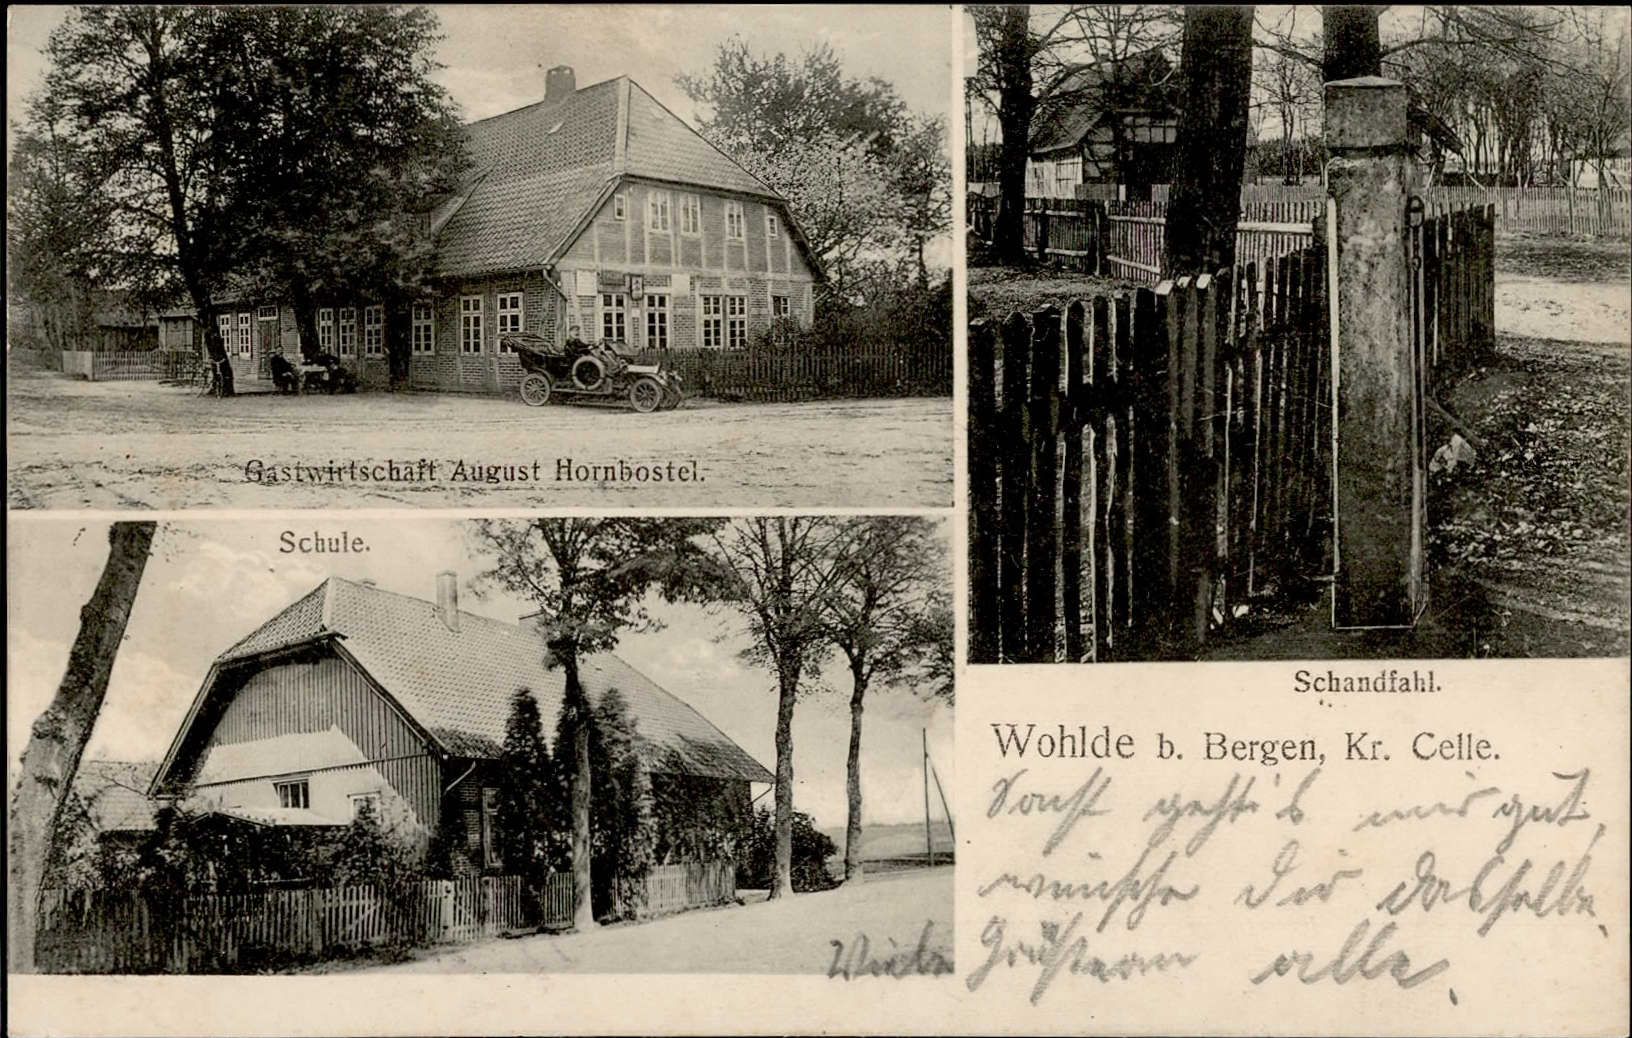 Gastwirtschaft August Hornbostel.
Schule.
Schandfahl.
Wohlde b. Bergen, Kr. Celle.
Sonst geht's mir gut,
wünsche Dir dasselbe.
Viele Grüße an alle.